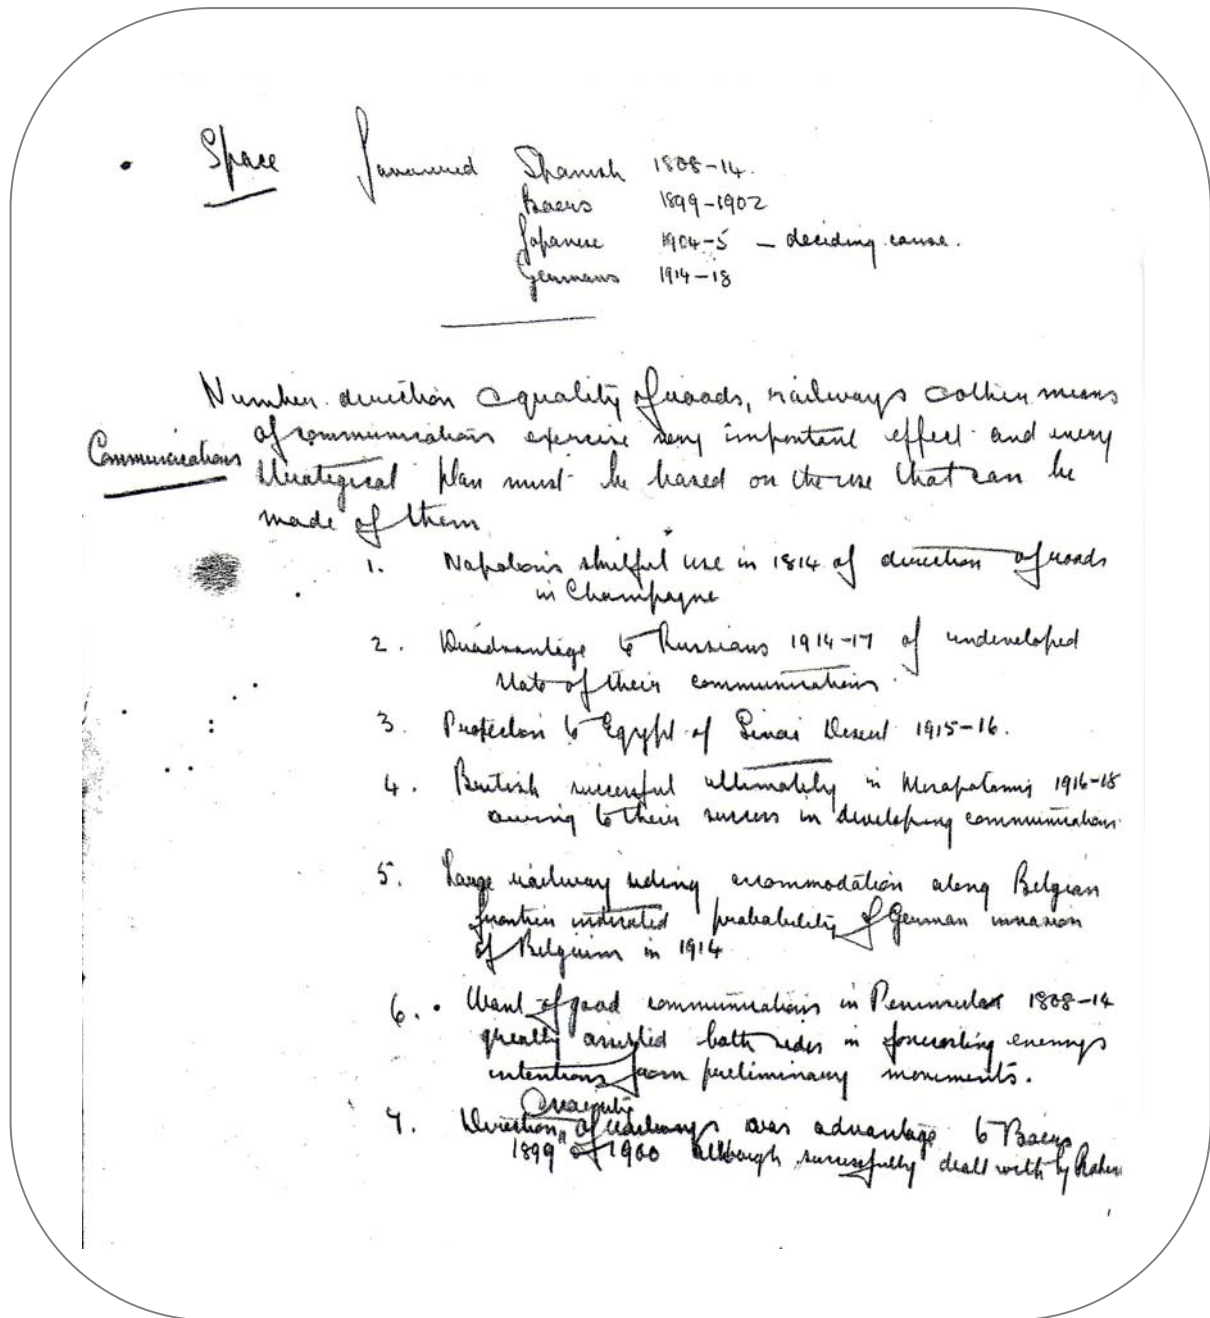 Space Favoured Spanish 1808-14.
Boers 1899-1902
Japanese 1904-5 — deciding cause.
Germans 1914-18
Number direction & quality of roads, railways & other means
of communications exercise very important effect and every
Communications
Strategical plan must be based on the use that can be
made of them
1. Napoleon's skilful use in 1814 of direction of roads
in Champagne
2. Disadvantage to Russians 1914-17 of undeveloped
state of their communications.
3. Protection to Egypt of Sinai Desert 1915-16.
4. British successful ultimately in Mesopotamia 1916-18
owing to their success in developing communications
5. Large railway siding accommodation along Belgian
frontier indicated probability of German invasion
of Belgium in 1914
6. Want of good communications in Peninsular 1808-14
greatly assisted both sides in forecasting enemys
intentions from preliminary movements.
7. Direction of railways was advantage to Boers
1899 1900 although successfully dealt with by